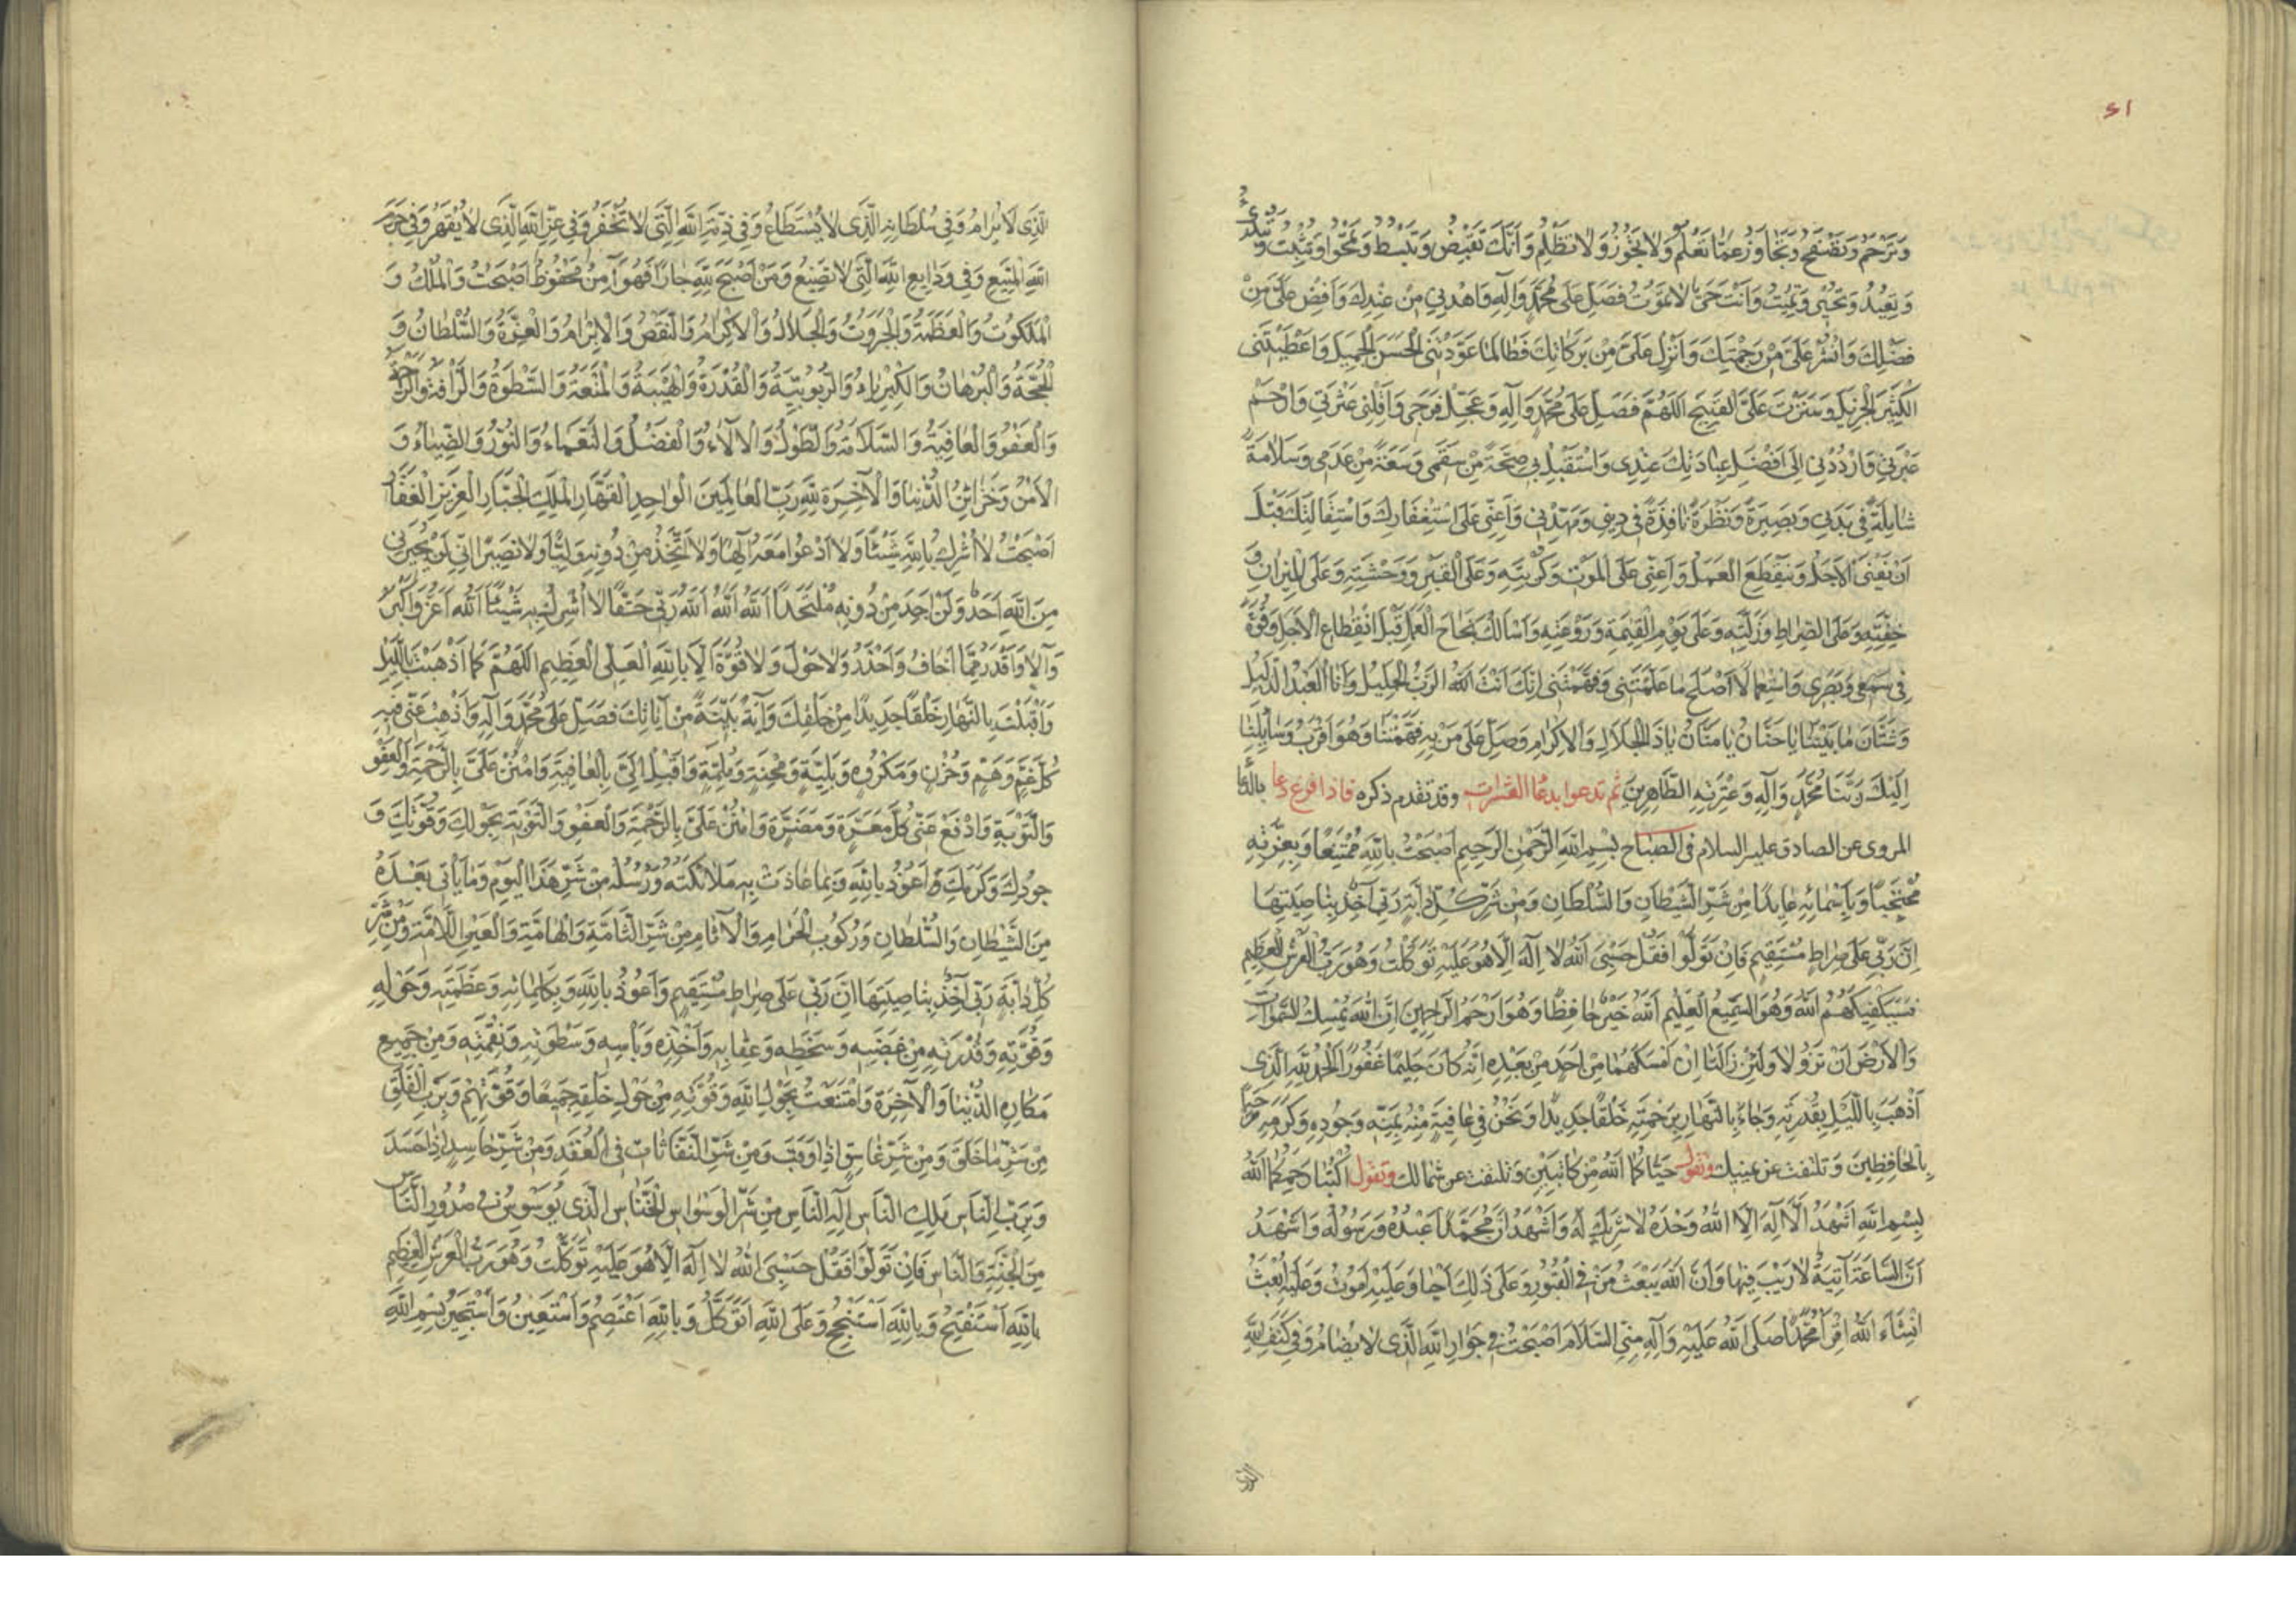 ٢١
وَتَرْحَمُ وَتَصْفَحُ وَتَجَاوَزُ عَمَّا تَعْلَمُ وَلَا تَجُوْرُ وَلَا تَظْلِمُ وَاَنَّكَ تَقْبِضُ وَتَبْسُطُ وَتَمْحُوا وَتُثْبِتُ وَتُبْدِئُ
وَتُعِيْدُ وَتُحْيِى وَتُمِيْتُ وَاَنْتَ حَىٌّ لَا تَمُوْتُ فَصَلِّ عَلَى مُحَمَّدٍ وَآلِهِ وَاهْدِنِى مِنْ عِنْدِكَ وَاَفِضْ عَلَىَّ مِنْ
فَضْلِكَ وَانْشُرْ عَلَىَّ مِنْ رَحْمَتِكَ وَاَنْزِلْ عَلَىَّ مِنْ بَرَكَاتِكَ فَطَالَمَا عَوَّدْتَنِى الْحَسَنَ الْجَمِيْلَ وَاَعْطَيْتَنِى
الْكَثِيْرَ الْجَزِيْلَ وَسَتَرْتَ عَلَىَّ الْقَبِيْحَ اَللّٰهُمَّ فَصَلِّ عَلَى مُحَمَّدٍ وَآلِهِ وَعَجِّلْ فَرَجِى وَاَقِلْنِى عَثْرَتِى وَارْحَمْ
عَبْرَتِى وَارْدُدْنِى اِلَى اَفْضَلِ عِبَادَتِكَ عِنْدِى وَاسْتَقْبِلْ بِى صِحَّةً مِنْ سَقَمِى وَسَعَةً مِنْ عَدَمِى وَسَلَامَةً
شَامِلَةً فِى بَدَنِى وَبَصِيْرَةً وَنَظْرَةً نَافِذَةً فِى دِيْنِى وَمَهِّدْنِى وَاَعِنِّى عَلَى اسْتِغْفَارِكَ وَاسْتِقَالَتِكَ قَبْلَ
اَنْ يَفْنَى الْاَجَلُ وَيَنْقَطِعَ الْعَمَلُ وَاَعِنِّى عَلَى الْمَوْتِ وَكُرْبَتِهِ وَعَلَى الْقَبْرِ وَوَحْشَتِهِ وَعَلَى الْمِيْزَانِ وَ
خِفَّتِهِ وَعَلَى الصِّرَاطِ وَزَلَّتِهِ وَعَلَى يَوْمِ الْقِيٰمَةِ وَرَوْعَتِهِ وَاَسْاَلُكَ نَجَاحَ الْعَمَلِ قَبْلَ انْقِطَاعِ الْاَجَلِ وَقُوَّةً
فِى سَمْعِى وَبَصَرِى وَاسْتِعْمَالًا اَصْلَحَ مَا عَلَّمْتَنِى وَفَهَّمْتَنِى اِنَّكَ اَنْتَ اللّٰهُ الرَّبُّ الْجَلِيْلُ وَاَنَا الْعَبْدُ الذَّلِيْلُ
وَشَتَّانَ مَا بَيْنَنَا يَا حَنَّانُ يَا مَنَّانُ يَا ذَا الْجَلَالِ وَالْاِكْرَامِ وَصَلِّ عَلَى مَنْ بِهِ فَهَّمْتَنَا وَهُوَ اَقْرَبُ وَسَائِلِنَا
اِلَيْكَ رَبَّنَا مُحَمَّدٍ وَآلِهِ وَعِتْرَتِهِ الطَّاهِرِيْنَ ثم تدعوا بدعاء العشرات وقد تقدم ذكره فاذا فرغ دعا بالدعا
المروى عن الصادق عليه السلام فى الصباح بِسْمِ اللّٰهِ الرَّحْمٰنِ الرَّحِيْمِ اَصْبَحْتُ بِاللّٰهِ مُمْتَنِعًا وَبِعِزَّتِهِ
مُحْتَجِبًا وَبِاَسْمَائِهِ عَائِذًا مِنْ شَرِّ الشَّيْطَانِ وَالسُّلْطَانِ وَمِنْ شَرِّ كُلِّ دَابَّةٍ رَبِّى آخِذٌ بِنَاصِيَتِهَا
اِنَّ رَبِّى عَلَى صِرَاطٍ مُسْتَقِيْمٍ فَاِنْ تَوَلَّوْا فَقُلْ حَسْبِىَ اللّٰهُ لَا اِلٰهَ اِلَّا هُوَ عَلَيْهِ تَوَكَّلْتُ وَهُوَ رَبُّ الْعَرْشِ الْعَظِيْمِ
فَسَيَكْفِيْكَهُمُ اللّٰهُ وَهُوَ السَّمِيْعُ الْعَلِيْمُ اَللّٰهُ خَيْرٌ حَافِظًا وَهُوَ اَرْحَمُ الرَّاحِمِيْنَ اِنَّ اللّٰهَ يُمْسِكُ السَّمٰوَاتِ
وَالْاَرْضَ اَنْ تَزُوْلَا وَلَئِنْ زَالَتَا اِنْ اَمْسَكَهُمَا مِنْ اَحَدٍ مِنْ بَعْدِهِ اِنَّهُ كَانَ حَلِيْمًا غَفُوْرًا اَلْحَمْدُ لِلّٰهِ الَّذِى
اَذْهَبَ بِاللَّيْلِ بِقُدْرَتِهِ وَجَاءَ بِالنَّهَارِ بِرَحْمَتِهِ خَلْقًا جَدِيْدًا وَنَحْنُ فِى عَافِيَةٍ مِنْهُ بِمَنِّهِ وَجُوْدِهِ وَكَرَمِهِ مَرْحَبًا
بِالْحَافِظِيْنَ وتلتفت عن يمينك وتقول حَيَّاكُمَا اللّٰهُ مِنْ كَاتِبَيْنِ وتلتفت عن شمالك وتقول اُكْتُبَا رَحِمَكُمَا اللّٰهُ
بِسْمِ اللّٰهِ اَشْهَدُ اَنْ لَا اِلٰهَ اِلَّا اللّٰهُ وَحْدَهُ لَا شَرِيْكَ لَهُ وَاَشْهَدُ اَنَّ مُحَمَّدًا عَبْدُهُ وَرَسُوْلُهُ وَاَشْهَدُ
اَنَّ السَّاعَةَ آتِيَةٌ لَا رَيْبَ فِيْهَا وَاَنَّ اللّٰهَ يَبْعَثُ مَنْ فِى الْقُبُوْرِ وَعَلَى ذٰلِكَ اَحْيَا وَعَلَيْهِ اَمُوْتُ وَعَلَيْهِ اُبْعَثُ
اِنْشَاءَ اللّٰهُ اَقْرِءَا مُحَمَّدًا صَلَّى اللّٰهُ عَلَيْهِ وَآلِهِ مِنِّى السَّلَامَ اَصْبَحْتُ فِى جِوَارِ اللّٰهِ الَّذِى لَا يُضَامُ وَفِى كَنَفِ اللّٰهِ
الذى
الَّذِى لَا يُرَامُ وَفِى سُلْطَانِهِ الَّذِى لَا يُسْتَطَاعُ وَفِى ذِمَّةِ اللّٰهِ الَّتِى لَا تُخْفَرُ وَفِى عِزِّ اللّٰهِ الَّذِى لَا يُقْهَرُ وَفِى حَرَمِ
اللّٰهِ الْمَنِيْعِ وَفِى وَدَايِعِ اللّٰهِ الَّتِى لَا تَضِيْعُ وَمَنْ اَصْبَحَ لِلّٰهِ جَارًا فَهُوَ آمِنٌ مَحْفُوْظٌ اَصْبَحْتُ وَالْمُلْكُ وَ
الْمَلَكُوْتُ وَالْعَظَمَةُ وَالْجَبَرُوْتُ وَالْجَلَالُ وَالْاِكْرَامُ وَالنَّقْضُ وَالْاِبْرَامُ وَالْعِزَّةُ وَالسُّلْطَانُ وَ
الْحُجَّةُ وَالْبُرْهَانُ وَالْكِبْرِيَاءُ وَالرُّبُوْبِيَّةُ وَالْقُدْرَةُ وَالْهَيْبَةُ وَالْمَنَعَةُ وَالسَّطْوَةُ وَالرَّاْفَةُ وَالرَّحْمَةُ
وَالْعَفْوُ وَالْعَافِيَةُ وَالسَّلَامَةُ وَالطَّوْلُ وَالْآلَاءُ وَالْفَضْلُ وَالنَّعْمَاءُ وَالنُّوْرُ وَالضِّيَاءُ وَ
الْاَمْنُ وَخَزَائِنُ الدُّنْيَا وَالْآخِرَةِ لِلّٰهِ رَبِّ الْعَالَمِيْنَ الْوَاحِدِ الْقَهَّارِ الْمَلِكِ الْجَبَّارِ الْعَزِيْزِ الْغَفَّارِ
اَصْبَحْتُ لَا اُشْرِكُ بِاللّٰهِ شَيْئًا وَلَا اَدْعُوا مَعَهُ اِلٰهًا وَلَا اَتَّخِذُ مِنْ دُوْنِهِ وَلِيًّا وَلَا نَصِيْرًا اِنِّى لَنْ يُجِيْرَنِى
مِنَ اللّٰهِ اَحَدٌ وَلَنْ اَجِدَ مِنْ دُوْنِهِ مُلْتَحَدًا اَللّٰهُ اَللّٰهُ اَللّٰهُ رَبِّى حَقًّا لَا اُشْرِكُ بِهِ شَيْئًا اَللّٰهُ اَعَزُّ وَاَكْبَرُ
وَاَعْلَا وَاَقْدَرُ مِمَّا اَخَافُ وَاَحْذَرُ وَلَا حَوْلَ وَلَا قُوَّةَ اِلَّا بِاللّٰهِ الْعَلِىِّ الْعَظِيْمِ اَللّٰهُمَّ كَمَا اَذْهَبْتَ بِاللَّيْلِ
وَاَقْبَلْتَ بِالنَّهَارِ خَلْقًا جَدِيْدًا مِنْ خَلْقِكَ وَآيَةً بَيِّنَةً مِنْ آيَاتِكَ فَصَلِّ عَلَى مُحَمَّدٍ وَآلِهِ وَاَذْهِبْ عَنِّى فِيْهِ
كُلَّ غَمٍّ وَهَمٍّ وَحُزْنٍ وَمَكْرُوْهٍ وَبَلِيَّةٍ وَمِحْنَةٍ وَمُلِمَّةٍ وَاَقْبِلْ اِلَىَّ بِالْعَافِيَةِ وَامْنُنْ عَلَىَّ بِالرَّحْمَةِ وَالْعَفْوِ
وَالتَّوْبَةِ وَادْفَعْ عَنِّى كُلَّ مَعَرَّةٍ وَمَضَرَّةٍ وَامْنُنْ عَلَىَّ بِالرَّحْمَةِ وَالْعَفْوِ وَالتَّوْبَةِ بِحَوْلِكَ وَقُوَّتِكَ وَ
جُوْدِكَ وَكَرَمِكَ وَاَعُوْذُ بِاللّٰهِ وَبِمَا عَاذَتْ بِهِ مَلَائِكَتُهُ وَرُسُلُهُ مِنْ شَرِّ هَذَا الْيَوْمِ وَمَا يَاْتِى بَعْدَهُ
مِنَ الشَّيْطَانِ وَالسُّلْطَانِ وَرُكُوْبِ الْحَرَامِ وَالْآثَامِ مِنْ شَرِّ السَّامَّةِ وَالْهَامَّةِ وَالْعَيْنِ اللَّامَّةِ وَمِنْ شَرِّ
كُلِّ دَابَّةٍ رَبِّى آخِذٌ بِنَاصِيَتِهَا اِنَّ رَبِّى عَلَى صِرَاطٍ مُسْتَقِيْمٍ وَاَعُوْذُ بِاللّٰهِ وَبِكَلِمَاتِهِ وَعَظَمَتِهِ وَحَوْلِهِ
وَقُوَّتِهِ وَقُدْرَتِهِ مِنْ غَضَبِهِ وَسَخَطِهِ وَعِقَابِهِ وَاَخْذِهِ وَبَاْسِهِ وَسَطْوَتِهِ وَنِقْمَتِهِ وَمِنْ جَمِيْعِ
مَكَارِهِ الدُّنْيَا وَالْآخِرَةِ وَامْتَنَعْتُ بِحَوْلِ اللّٰهِ وَقُوَّتِهِ مِنْ حَوْلِ خَلْقِهِ جَمِيْعًا وَقُوَّتِهِمْ وَبِرَبِّ الْفَلَقِ
مِنْ شَرِّ مَا خَلَقَ وَمِنْ شَرِّ غَاسِقٍ اِذَا وَقَبَ وَمِنْ شَرِّ النَّفَّاثَاتِ فِى الْعُقَدِ وَمِنْ شَرِّ حَاسِدٍ اِذَا حَسَدَ
وَبِرَبِّ النَّاسِ مَلِكِ النَّاسِ اِلٰهِ النَّاسِ مِنْ شَرِّ الْوَسْوَاسِ الْخَنَّاسِ الَّذِى يُوَسْوِسُ فِى صُدُوْرِ النَّاسِ
مِنَ الْجِنَّةِ وَالنَّاسِ فَاِنْ تَوَلَّوْا فَقُلْ حَسْبِىَ اللّٰهُ لَا اِلٰهَ اِلَّا هُوَ عَلَيْهِ تَوَكَّلْتُ وَهُوَ رَبُّ الْعَرْشِ الْعَظِيْمِ
بِاللّٰهِ اَسْتَفْتِحُ وَبِاللّٰهِ اَسْتَنْجِحُ وَعَلَى اللّٰهِ اَتَوَكَّلُ وَبِاللّٰهِ اَعْتَصِمُ وَاَسْتَعِيْنُ وَاَسْتَجِيْرُ بِسْمِ اللّٰهِ